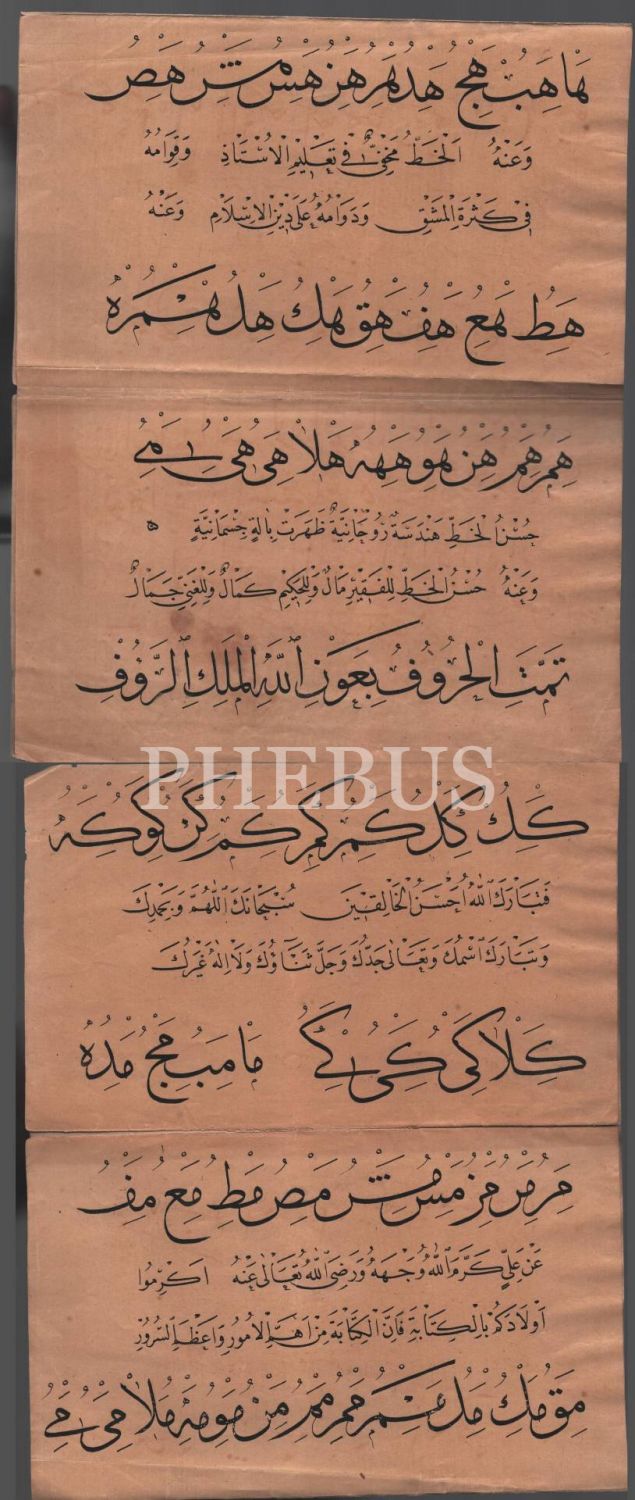 ها هب هج هد هر هز هس مش هص
وَعَنْهُ الْخَطُّ مَخْفِيٌّ فِي تَعْلِيمِ الْأُسْتَاذِ وَقِوَامُهُ
فِي كَثْرَةِ الْمَشْقِ وَدَوَامُهُ عَلَى دِينِ الْإِسْلَامِ وَعَنْهُ
هط هع هف هق هك هل
هم هم هن هو هه هلا هى هى
حُسْنُ الْخَطِّ هَنْدَسَةٌ رُوحَانِيَّةٌ ظَهَرَتْ بِآلَةٍ جِسْمَانِيَّةٍ ه
وَعَنْهُ حُسْنُ الْخَطِّ لِلْفَقِيرِ مَالٌ وَلِلْحَكِيمِ كَمَالٌ وَلِلْغَنِيِّ جَمَالٌ
تَمَّتِ الْحُرُوفُ بِعَوْنِ اللّٰهِ الْمَلِكِ الرَّؤُفِ
PHEBUS
كك كل كم كم كم كن كو كه
فَتَبَارَكَ اللّٰهُ أَحْسَنُ الْخَالِقِينَ سُبْحَانَكَ اللّٰهُمَّ وَبِحَمْدِكَ
وَتَبَارَكَ اسْمُكَ وَتَعَالٰى جَدُّكَ وَجَلَّ ثَنَاؤُكَ وَلَا إِلٰهَ غَيْرُكَ
كلا كى كى كے ما مب مج مد ه
مر مر مز مس مش مص مط مع مف
عَنْ عَلِيٍّ كَرَّمَ اللّٰهُ وَجْهَهُ وَرَضِيَ اللّٰهُ تَعَالٰى عَنْهُ اَكْرِمُوا
اَوْلَادَكُمْ بِالْكِتَابَةِ فَاِنَّ الْكِتَابَةَ مِنْ اَهَمِّ الْاُمُورِ وَاَعْظَمِ السُّرُورِ
مق مك مل مم مم من مو مه ملا مى مے